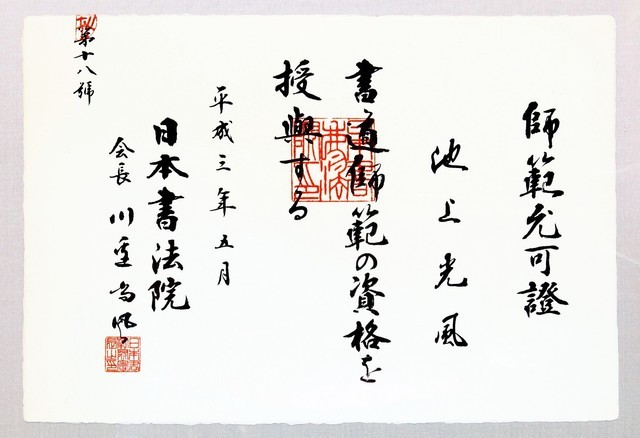 師範允可證
池上光風
書道師範の資格を
授與する
平成三年五月
日本書法院
会長 川邊尚風
第十八號